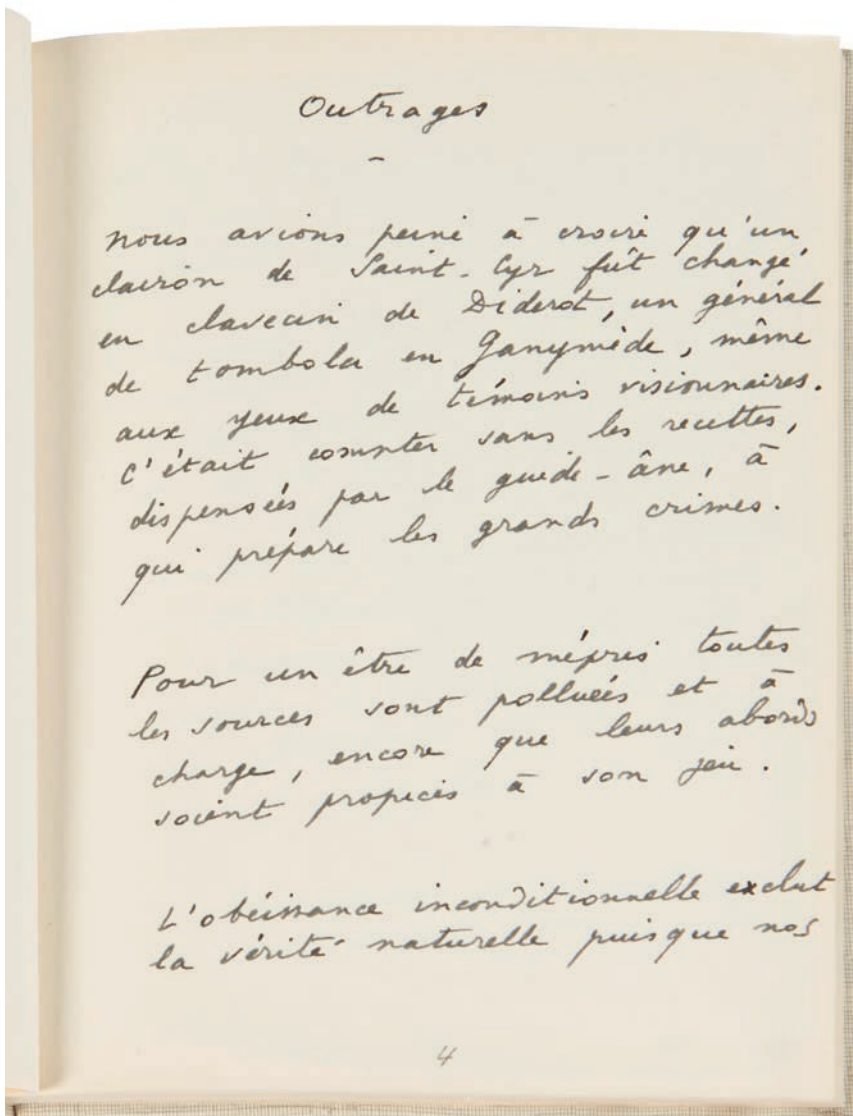 Outrages
-
Nous avions peine à croire qu'un
clairon de Saint-Cyr fût changé
en clavecin de Diderot, un général
de tombola en Ganymède, même
aux yeux de témoins visionnaires.
C'était compter sans les recettes,
dispensées par le guide-âne, à
qui prépare les grands crimes.
Pour un être de mépris toutes
les sources sont polluées et à
charge, encore que leurs abords
soient propices à son jeu.
L'obéissance inconditionnelle exclut
la vérité naturelle puisque nos
4